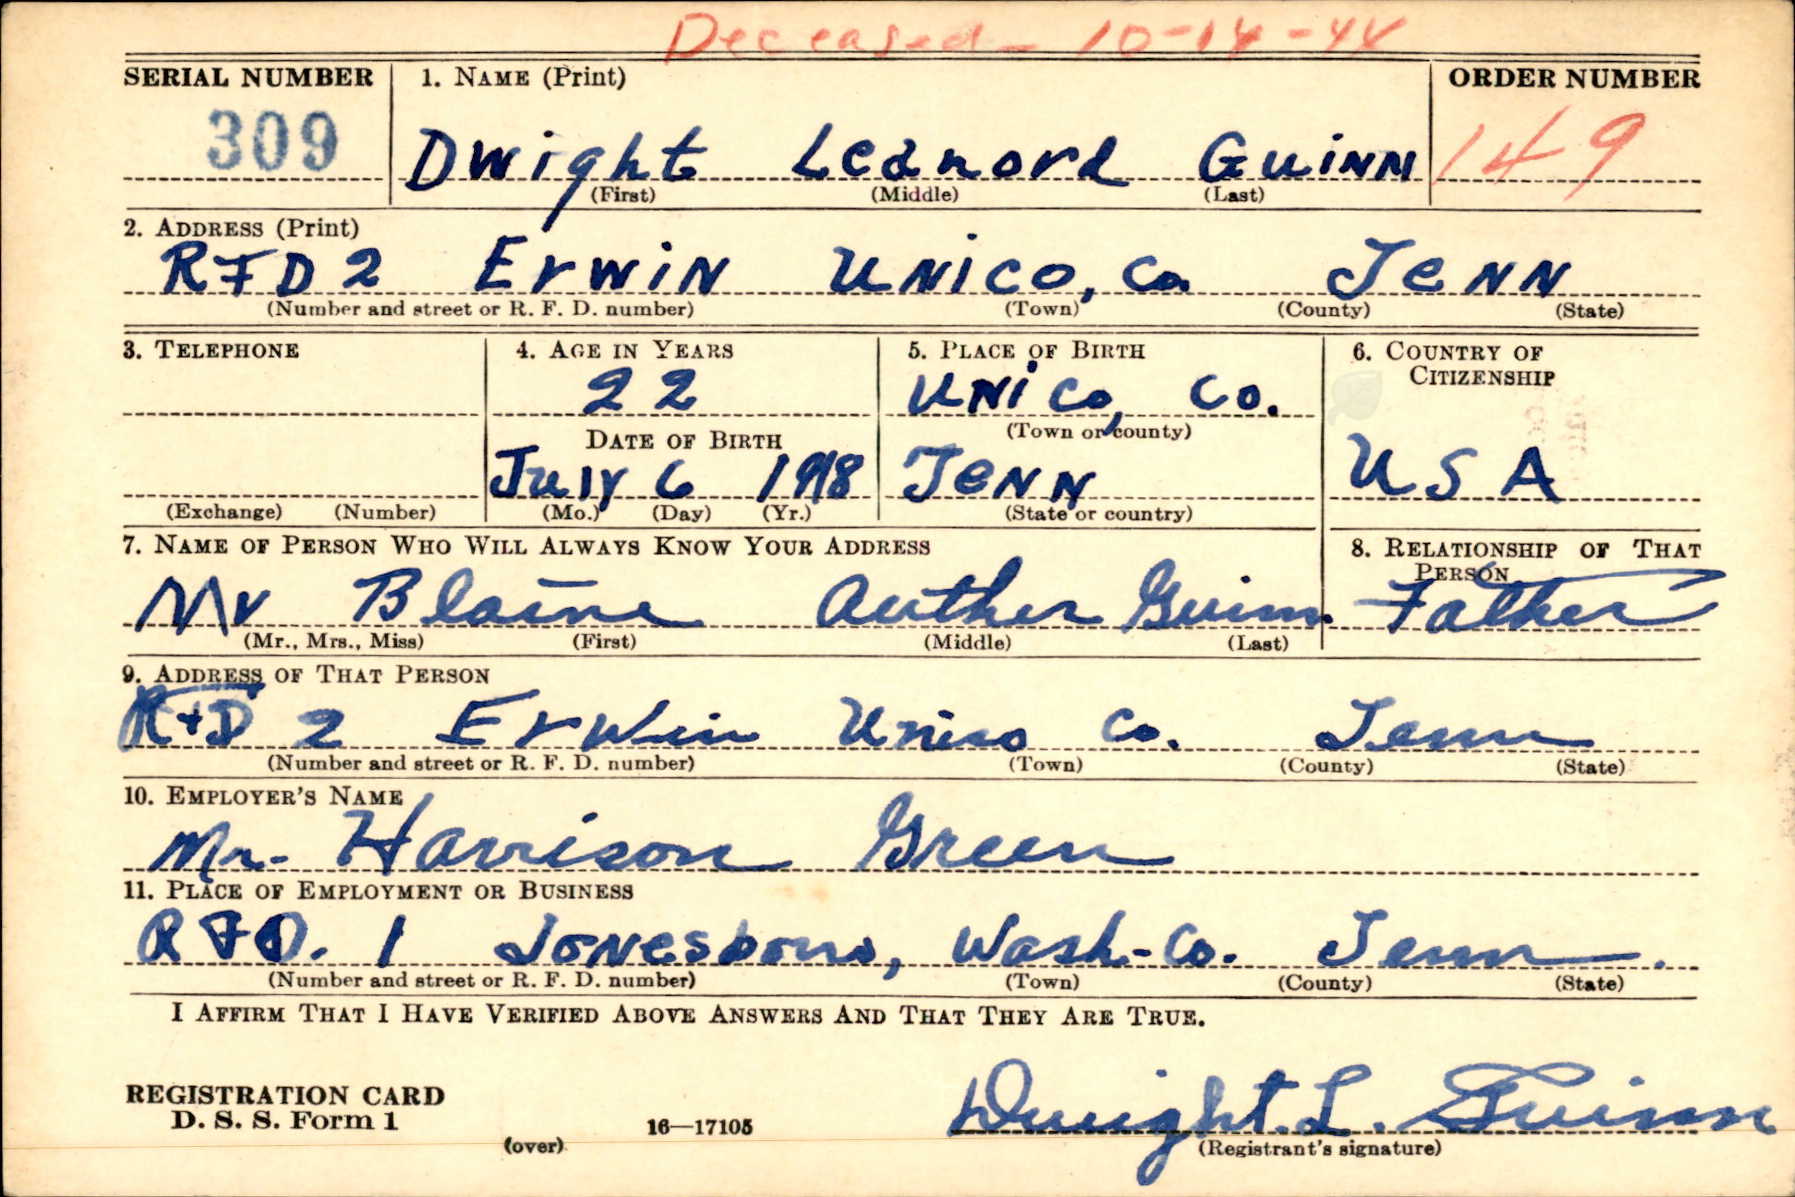 Deceased - 10-14-44
SERIAL NUMBER 1. NAME (Print) ORDER NUMBER
309 Dwight Leanord Guinn 149
(First) (Middle) (Last)
2. ADDRESS (Print)
RFD 2 Erwin Unico, Co. Tenn
(Number and street or R. F. D. number) (Town) (County) (State)
3. TELEPHONE 4. AGE IN YEARS 5. PLACE OF BIRTH 6. COUNTRY OF CITIZENSHIP
22 Unico, Co.
DATE OF BIRTH (Town or county)
July 6 1918 Tenn USA
(Exchange) (Number) (Mo.) (Day) (Yr.) (State or country)
7. NAME OF PERSON WHO WILL ALWAYS KNOW YOUR ADDRESS 8. RELATIONSHIP OF THAT PERSON
Mr Blaine Auther Guinn. Father
(Mr., Mrs., Miss) (First) (Middle) (Last)
9. ADDRESS OF THAT PERSON
RFD 2 Erwin Unico Co. Tenn
(Number and street or R. F. D. number) (Town) (County) (State)
10. EMPLOYER'S NAME
Mr. Harrison Green
11. PLACE OF EMPLOYMENT OR BUSINESS
RFD. 1 Jonesboro, Wash-Co. Tenn.
(Number and street or R. F. D. number) (Town) (County) (State)
I AFFIRM THAT I HAVE VERIFIED ABOVE ANSWERS AND THAT THEY ARE TRUE.
REGISTRATION CARD
D. S. S. Form 1 16—17105 Dwight. L. Guinn
(over) (Registrant's signature)